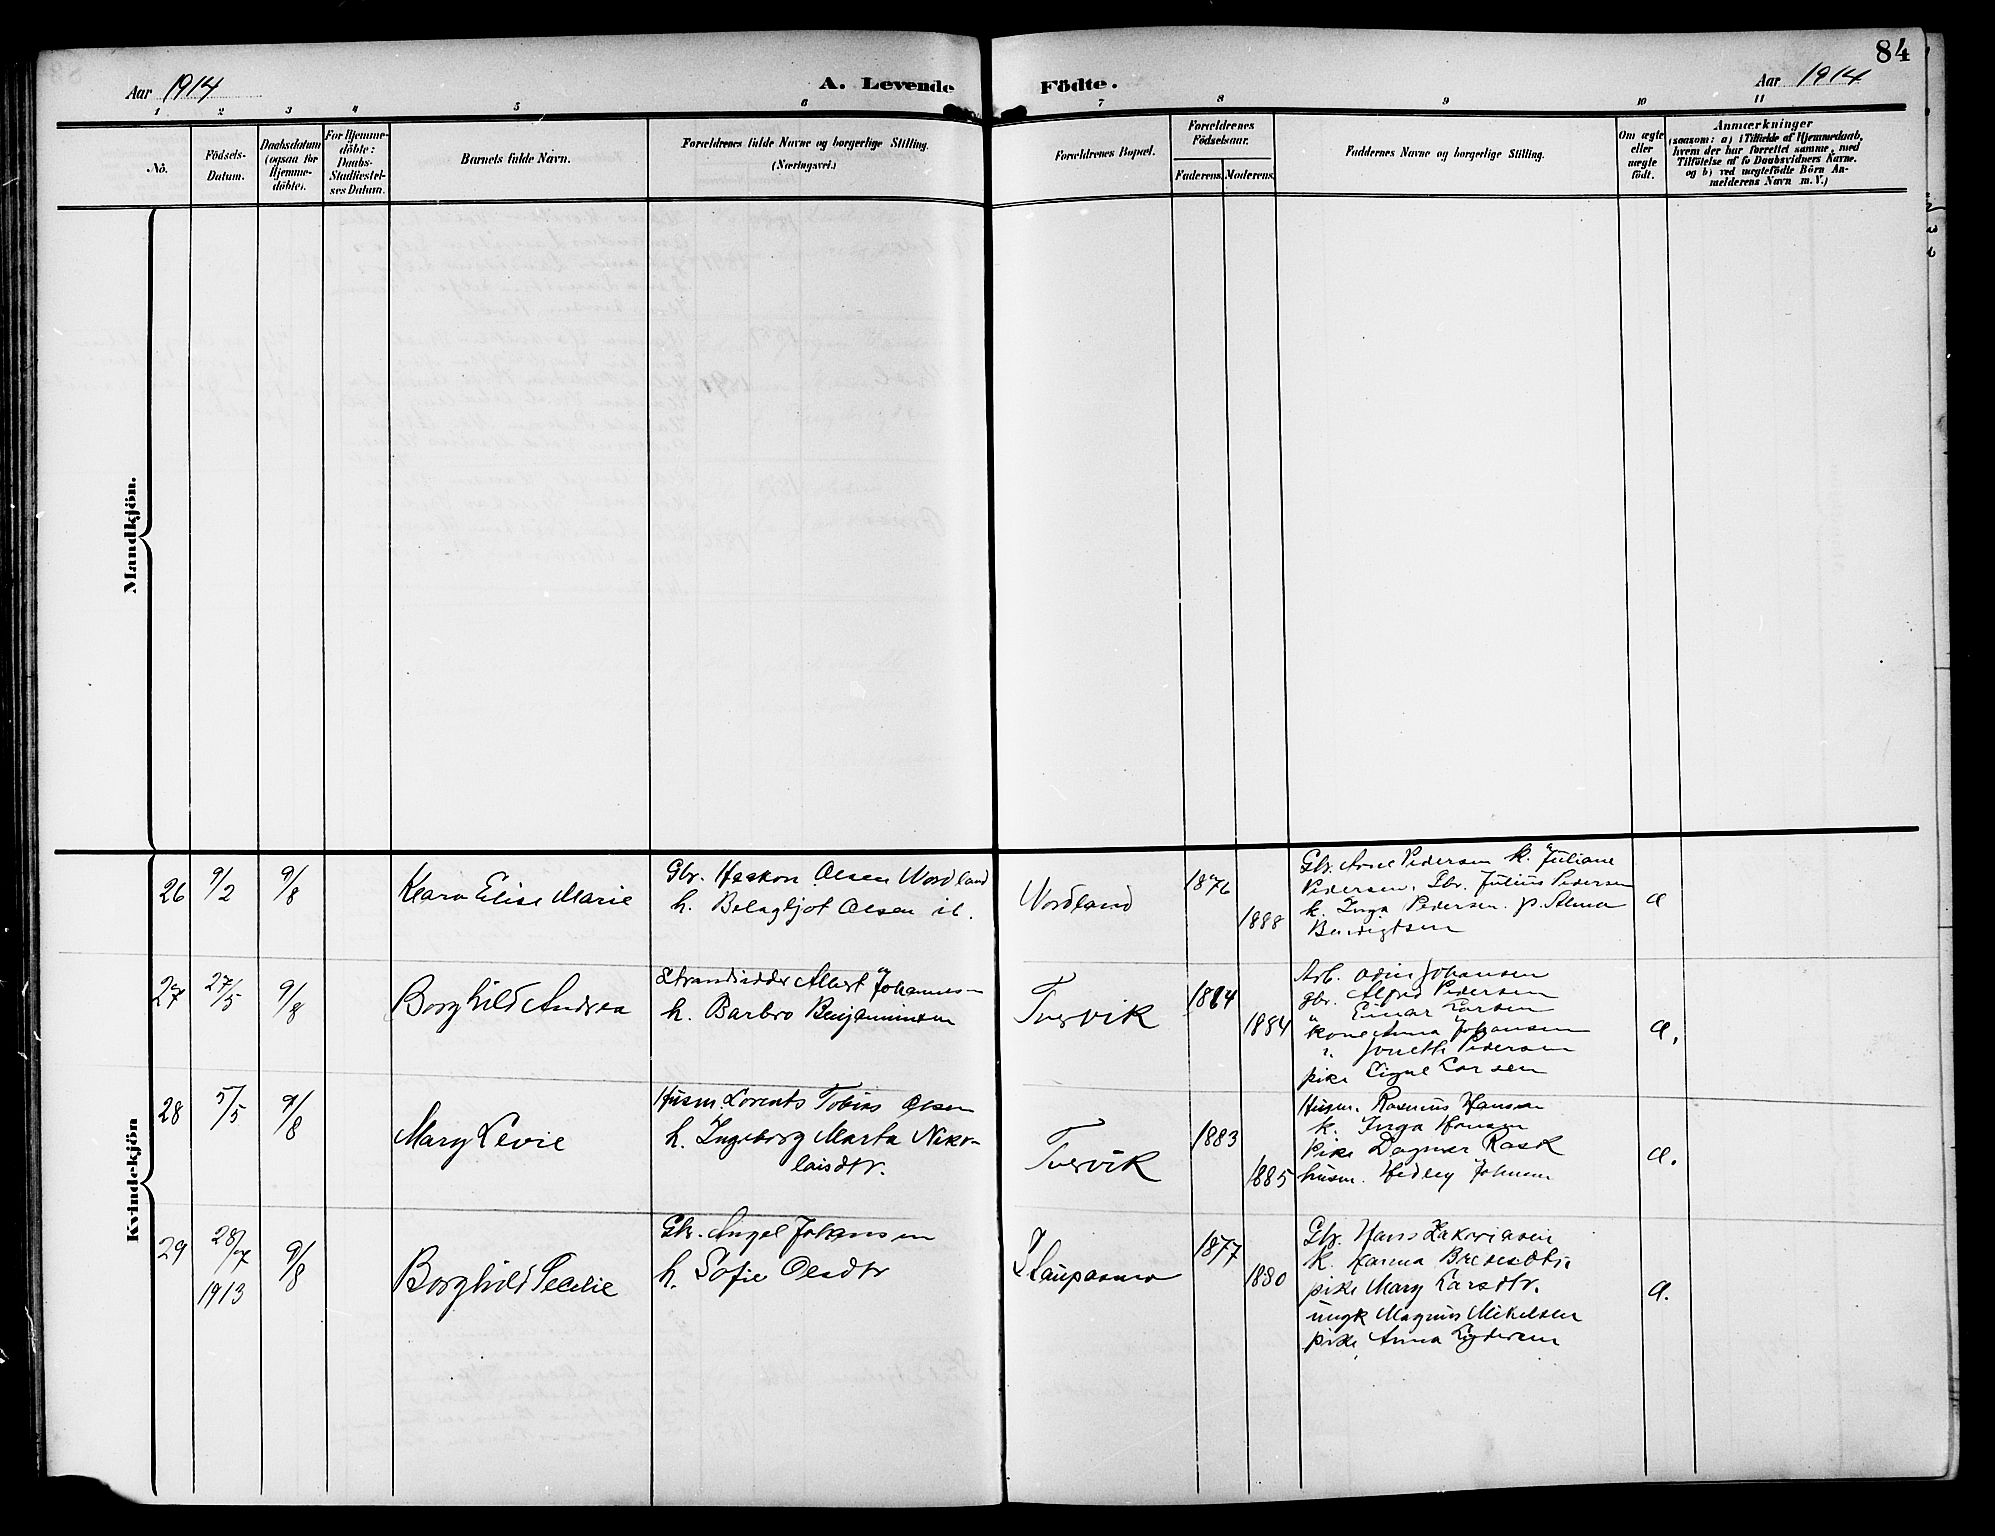 84
Aar 1914
A. Levende Födte.
Aar 1914
1 2 3 4 5 6 7 8 9 10 11
No.
Födsels-
Datum.
Daabsdatum
(ogsaa for
Hjemme-
döbte).
For Hjemme-
döbte:
Daabs-
Stadfæstel-
ses Datum.
Barnets fulde Navn.
Forældrenes fulde Navne og borgerlige Stilling.
(Næringsvei.)
Forældrenes Bopæl.
Forældrenes
Födselsaar.
Faderens. Moderens.
Faddernes Navne og borgerlige Stilling.
Om ægte
eller
uægte
födt.
Anmærkninger
(saasom: a) i Tilfælde af Hjemmedaab,
hvem der har forrettet samme, med
Tilföielse af to Daabsvidners Navne.
og b) ved uægtefödte Börn An-
melderens Navn m. V.)
Mandkjön.
Kvindekjön
26
9/2
9/8
Klara Elise Marie
Gbr. Haakon Olsen Nordland
h. Olsen
Nordland
1876
1888
Gbr. Arne Pedersen k. Juliane
Pedersen. Gbr. Julius Pedersen
k. Inga Pedersen. p. Alma
Benedigtsen
a
27
27/5
9/8
Borghild Andrea
Strandsidder Albert Johannes-
h. Barbro Benjaminsen
Tvervik
1884
Arb. Odin Johansen
gbr. Alfred Pedersen
" Einar Larsen
kone Anna Johansen
" Pedersen
pike Signe Larsen
a.
28
5/5
9/8
Mary Levie
Husm. Lorents Tobias Olsen
h. Ingeborg Marta Niko-
laisdtr.
Tvervik
1883
1885
Husm. Rasmus Hansen
k. Inga Hansen
Pike Dagmar Rask
husm. Hedley
a.
29
28/
1913
9/8
Borghild Cecilie
Gbr. Angel Johansen
h. Sofie Olsdtr
1877
1880
Gbr. Hans Zakariasen
k. Hanna
pike Mary Larsdtr.
ungk Magnus Mikelsen
pike Anna
a.